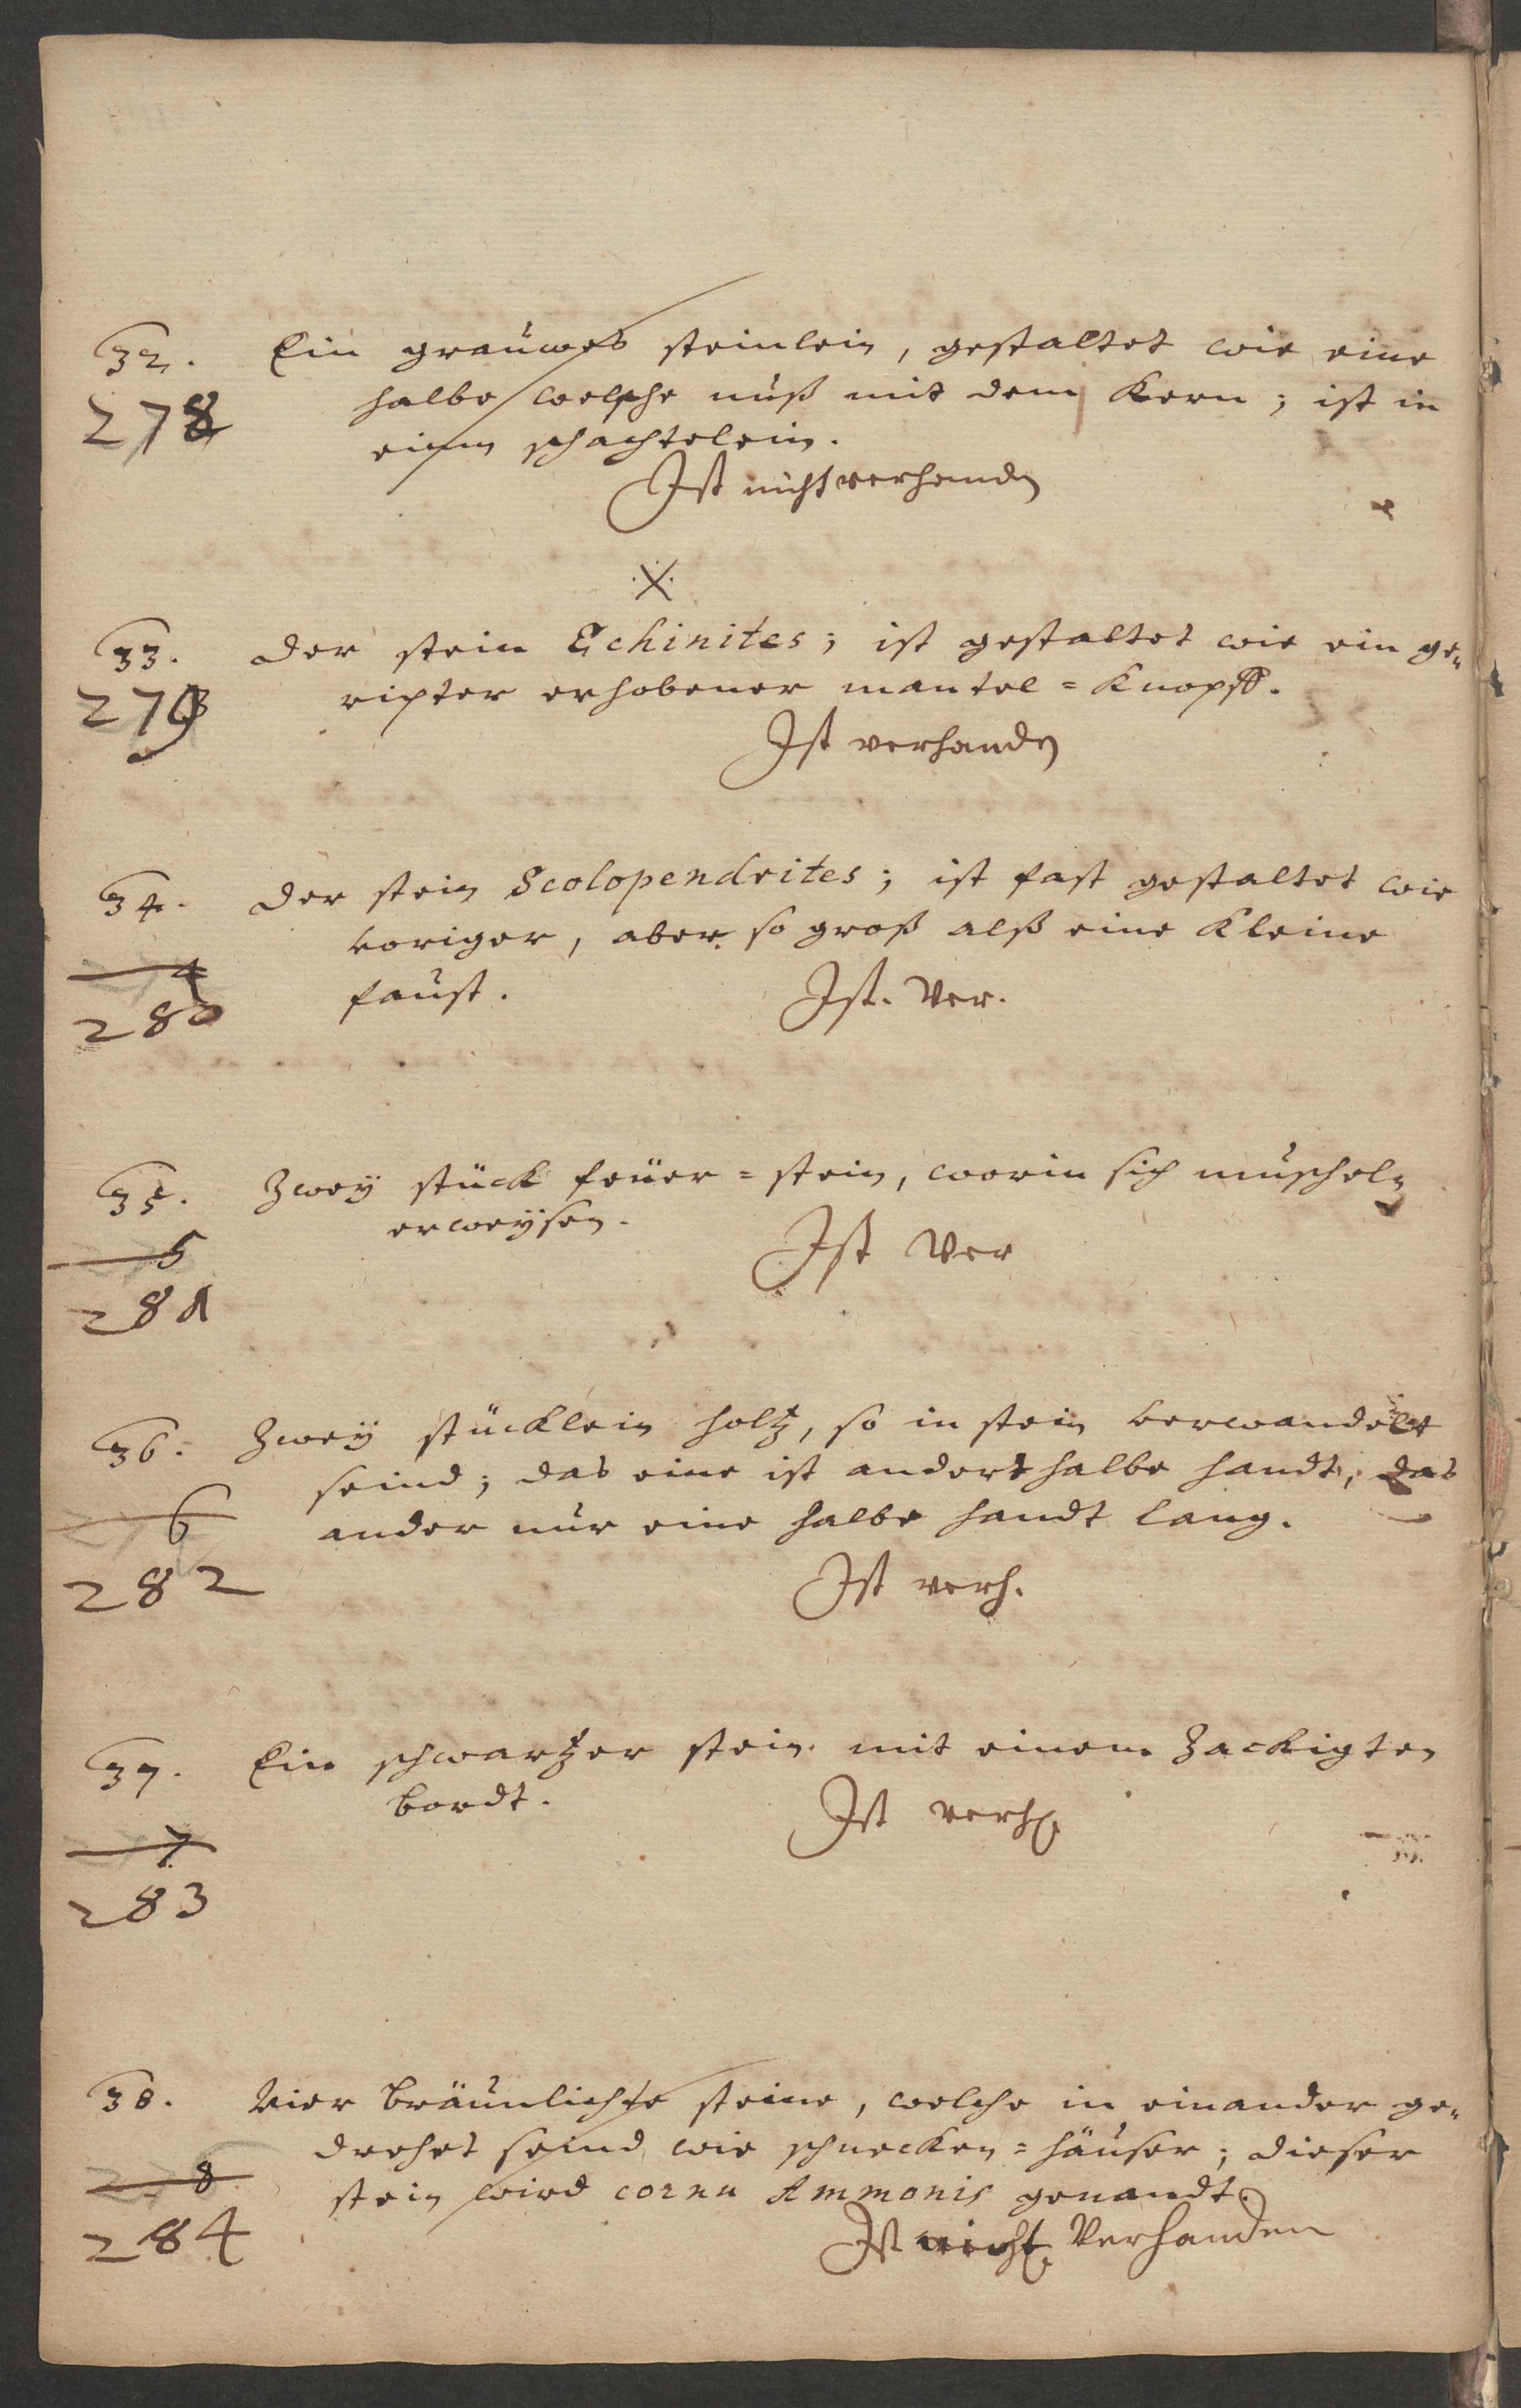 32. Ein grauwes steinlein, gestaltet wie eine
278 halbe welsche nuß mit dem Kern; ist in
einem schachtelein.
Ist nicht verhanden
X
33. Der stein Echinites; ist gestaltet wie ein ge-
279 ripter erhobener mantel=Knopff.
Ist verhanden
34. Der stein Scolopendrites; ist fast gestaltet wie
voriger, aber so groß alß eine Kleine
4 faust. Ist. Ver.
280
35. Zwey stück feüer=stein, worin sich muscheln
erweysen.
5 Ist Ver
281
36. Zwey stücklein holtz, so in stein verwandelt
seind; das eine ist anderthalbe handt, das
6 ander nur eine halbe handt lang.
282 Ist verh.
37. Ein schwartzer stein mit einem Zackigten
bordt. Ist verh.
7
283
38. Vier bräunlichte steine, welche in einander ge-
drehet seind wie schnecken=häuser; dieser
8 stein wird cornu Ammonis genandt.
284 Ist nicht Verhanden